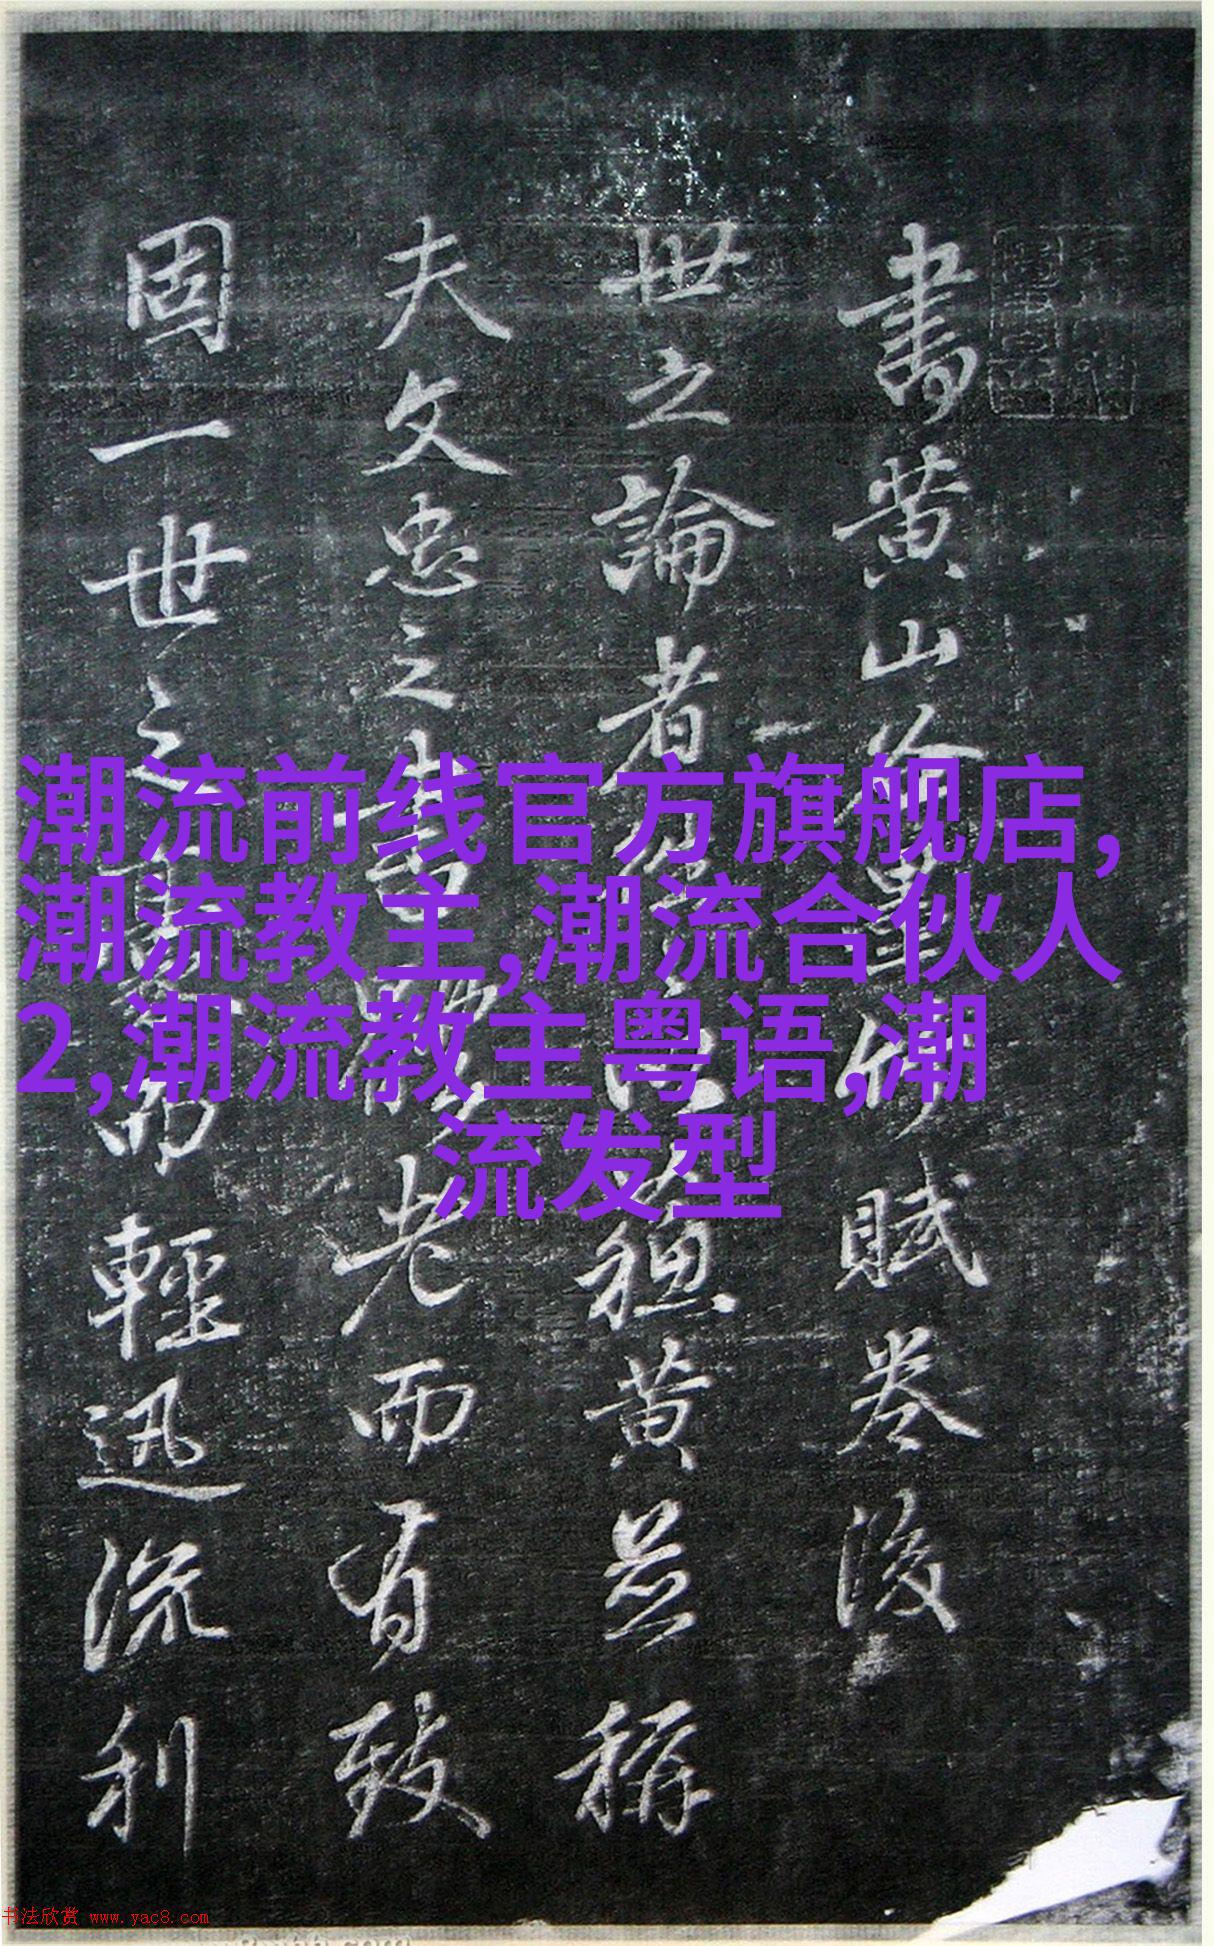 書黄山谷墨竹賦卷後
世之論者蘓黄並稱
夫文忠之書老而有致
固一世之而輕迅流利
潮流前线官方旗舰店,
潮流教主,潮流合伙人
2,潮流教主粤语,潮
流发型
书法欣赏 www.yac8.com